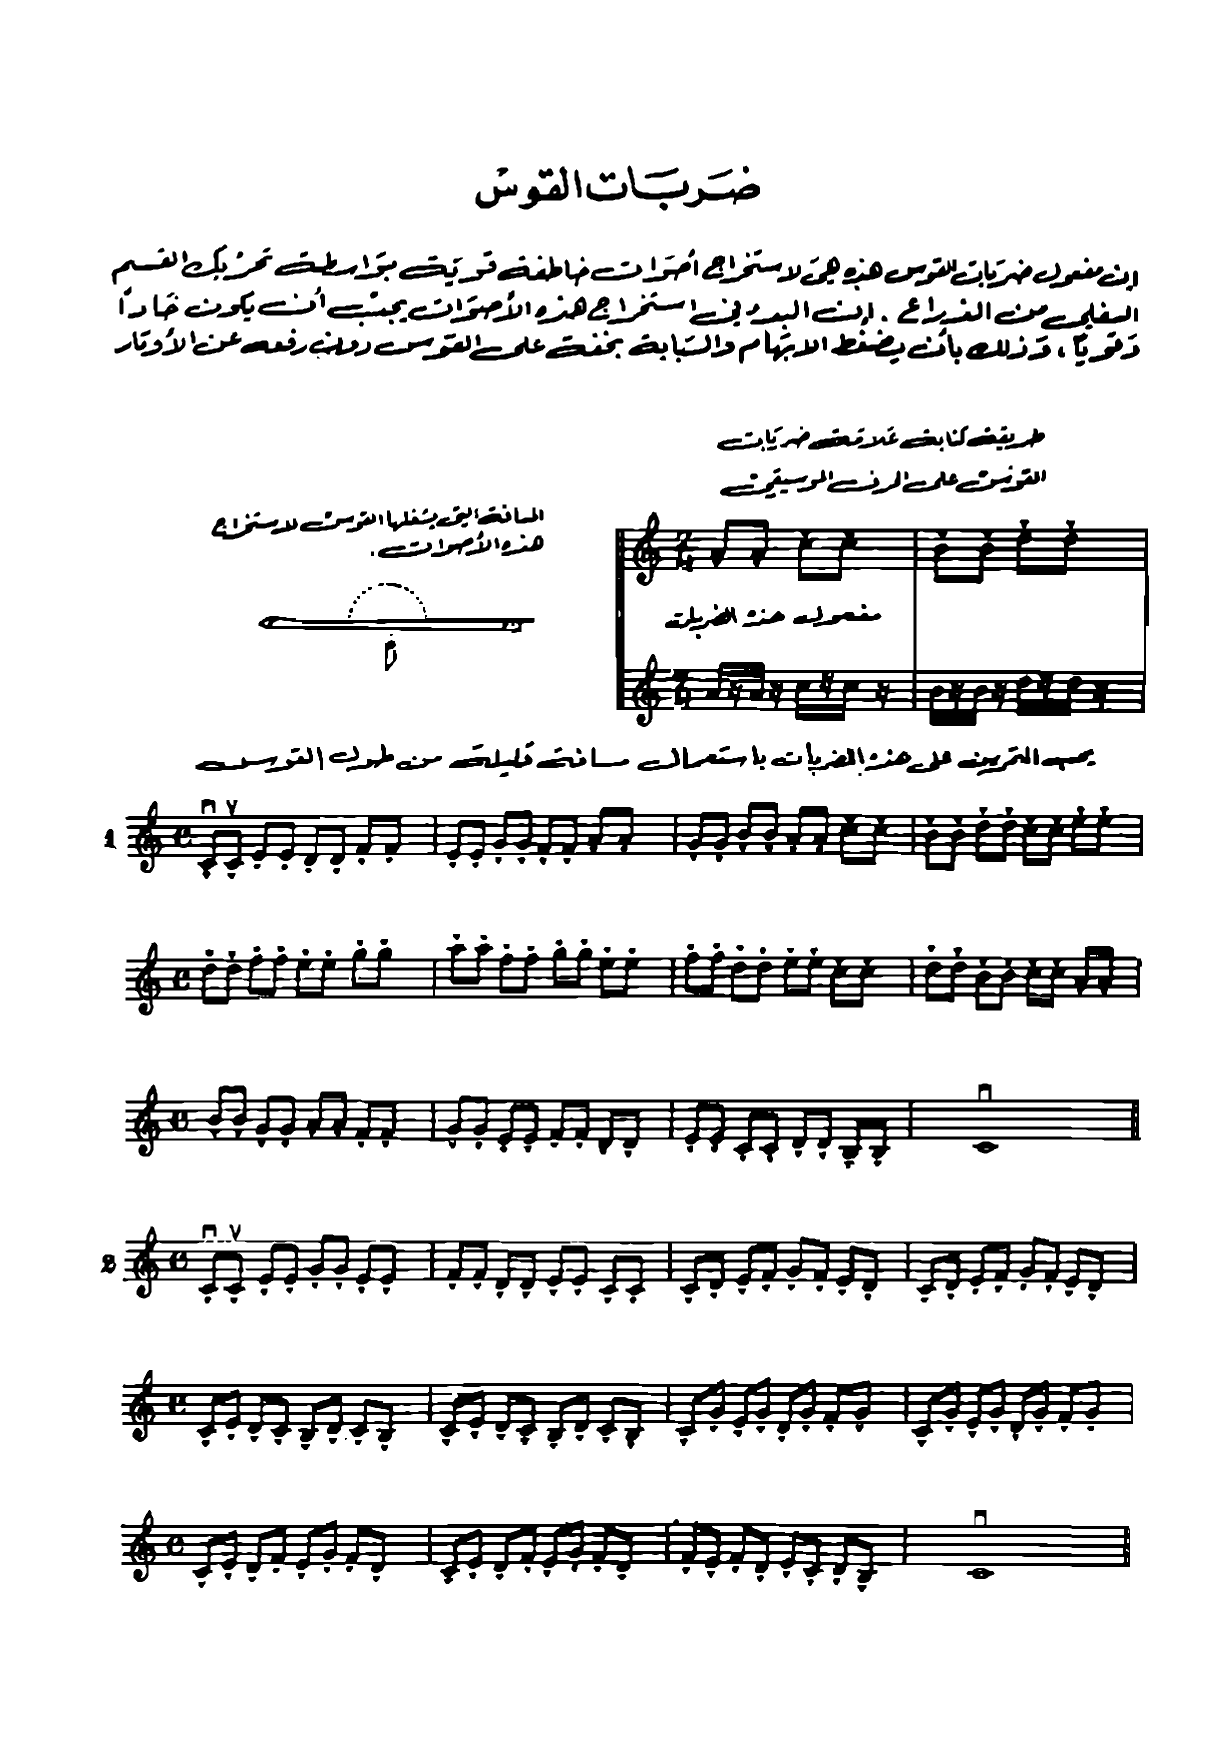 ضربات القوس
إن مفعول ضربات القوس هذه هي لاستخراج أصوات خاطفة قوية بواسطة تحريك القسم
السفلي من الذراع . إن البدء في استخراج هذه الأصوات يجب أن يكون حاداً
وقوياً ، وذلك بأن يضغط الابهام والسبابة بخفة على القوس دون رفعه عن الأوتار
طريقة كتابة علامة ضربات
القوس على المدرج الموسيقي
المسافة التي يشغلها القوس لاستخراج
هذه الأصوات .
مفعول هذه الضربات
يجب التمرين على هذه الضربات باستعمال مسافة قليلة من طول القوس
1
2